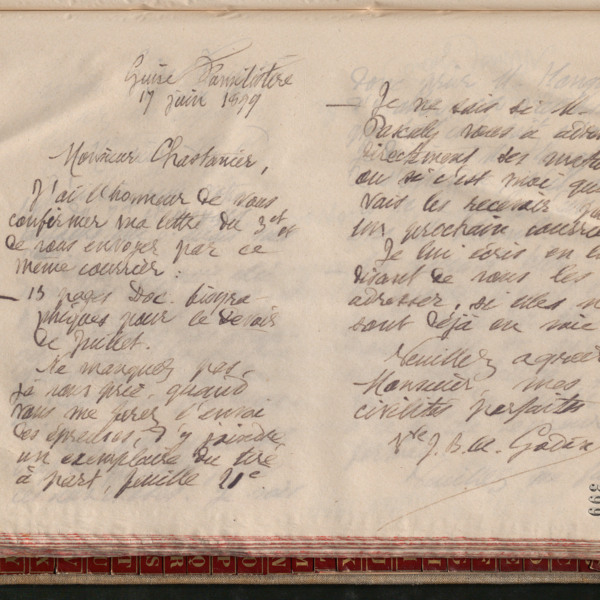 Guise Familistère
17 juin 1899
Monsieur Chastanier,
J'ai l'honneur de vous
confirmer ma lettre du 3 et
de vous envoyer par ce
même courrier :
— 15 pages Doc. biogra
phiques pour le Devoir
de Juillet.
Ne manquez pas,
je vous prie, quand
vous me ferez l'envoi
des épreuves, d'y joindre
un exemplaire du tiré
à part, feuille 21e
— Je ne sais si M.
Pascaly vous a
directement ses
ou si c'est moi qui
vais les recevoir
un prochain courrier
Je lui écris en
disant de vous les
adresser, si elles
sont déjà en voie
Veuillez agréer
Monsieur, mes
civilités parfaites
Vve J. B. A. Godin
399